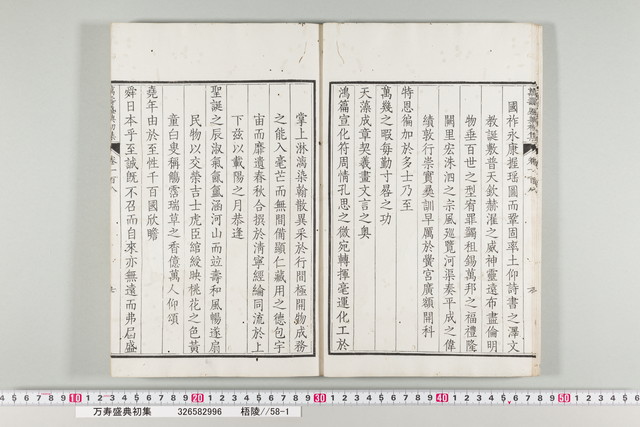 國祚永康握瑶圖而鞏固率土仰詩書之澤文
教誕敷普天欽赫濯之威神靈遠布盡倫明
物垂百世之型宥罪蠲租錫萬邦之福禮隆
闕里宏洙泗之宗風巡覽河渠奏平成之偉
績敦行崇實彝訓早厲於黌宮廣額開科
特恩徧加於多士乃至
萬幾之暇每勤寸晷之功
天藻成章契羲畫文言之奥
鴻篇宣化符周情孔思之微宛轉揮毫運化工於
掌上淋漓染翰散異采於行間極開物成務
之能入毫芒而無間備顯仁藏用之德包宇
宙而靡遺春秋合撰於淸寧經綸同流於上
下兹以載陽之月恭逢
聖誕之辰淑氣氤氳涵河山而竝壽和風暢遂扇
民物以交榮吉士虎臣綰綬映桃花之色黃
童白叟稱觴霑瑞草之香億萬人仰頌
堯年由於至性千百國欣瞻
舜日本乎至誠旣不召而自來亦無遠而弗屆盛
卷一百八
七
万寿盛典初集 326582996 梧陵//58-1
10 20 30 40 50